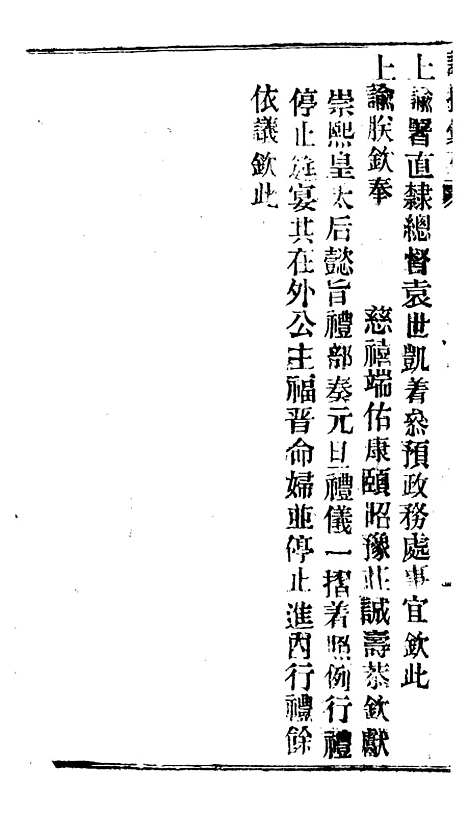 上諭署直隸總督袁世凱着叅預政務處事宜欽此
上諭朕欽奉　　　慈禧端佑康頤昭豫莊誠壽恭欽獻
崇熙皇太后懿旨禮部奏元旦禮儀一摺着照例行禮
停止筵宴其在外公主福晉命婦並停止進內行禮餘
依議欽此